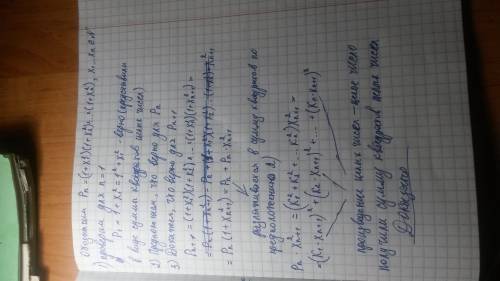 Обозначим Pₙ = (1+x₁²)(1+x₂²)·...·(1+xₙ²), x₁...xₙ ∈ N
1) проверим для n=1
P₁ = 1+x₁² = 1²+x₁² - верно (представим
в виде суммы квадратов целых чисел)
2) Предположим, что верно для Pₙ
3) Докажем, что верно для Pₙ₊₁
Pₙ₊₁ = (1+x₁²)(1+x₂²)·...·(1+xₙ²)(1+xₙ₊₁²) =
= Pₙ(1+xₙ₊₁²) = Pₙ
= Pₙ(1+xₙ₊₁²) = Pₙ + Pₙ·xₙ₊₁²
разбивается в сумму квадратов по
предположению 2)
Pₙ·xₙ₊₁² = (K₁²+K₂²+...Kₙ²)xₙ₊₁² =
= (K₁·xₙ₊₁)² + (K₂·xₙ₊₁)² + ... + (Kₙ·xₙ₊₁)²
произведение целых чисел - целое число
получили сумму квадратов целых чисел
Доказано